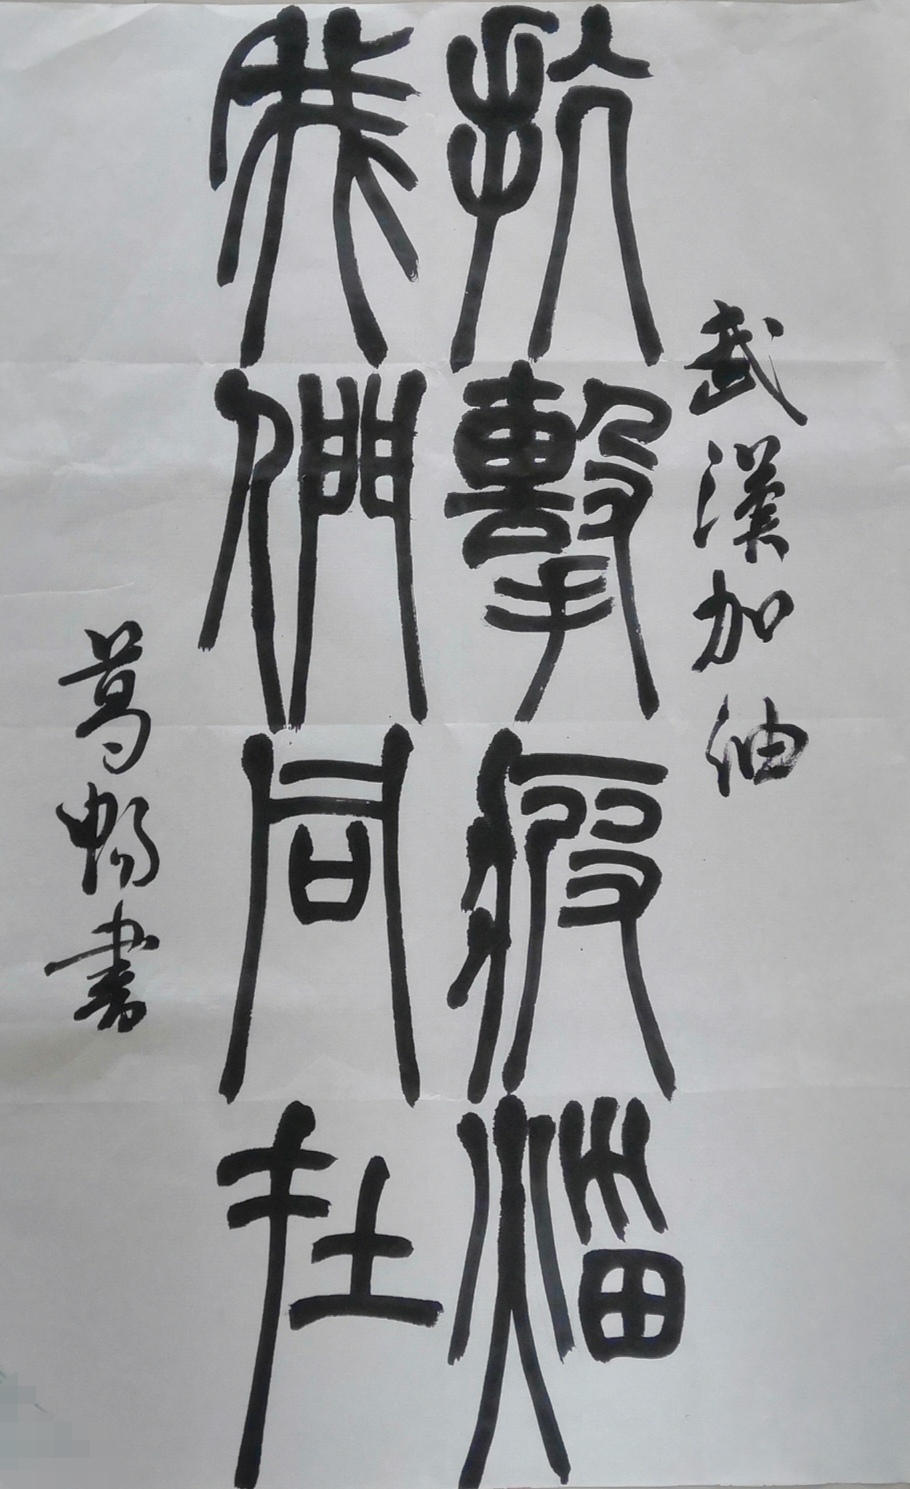 武漢加油
抗擊疫災
我們同在
葛暢書